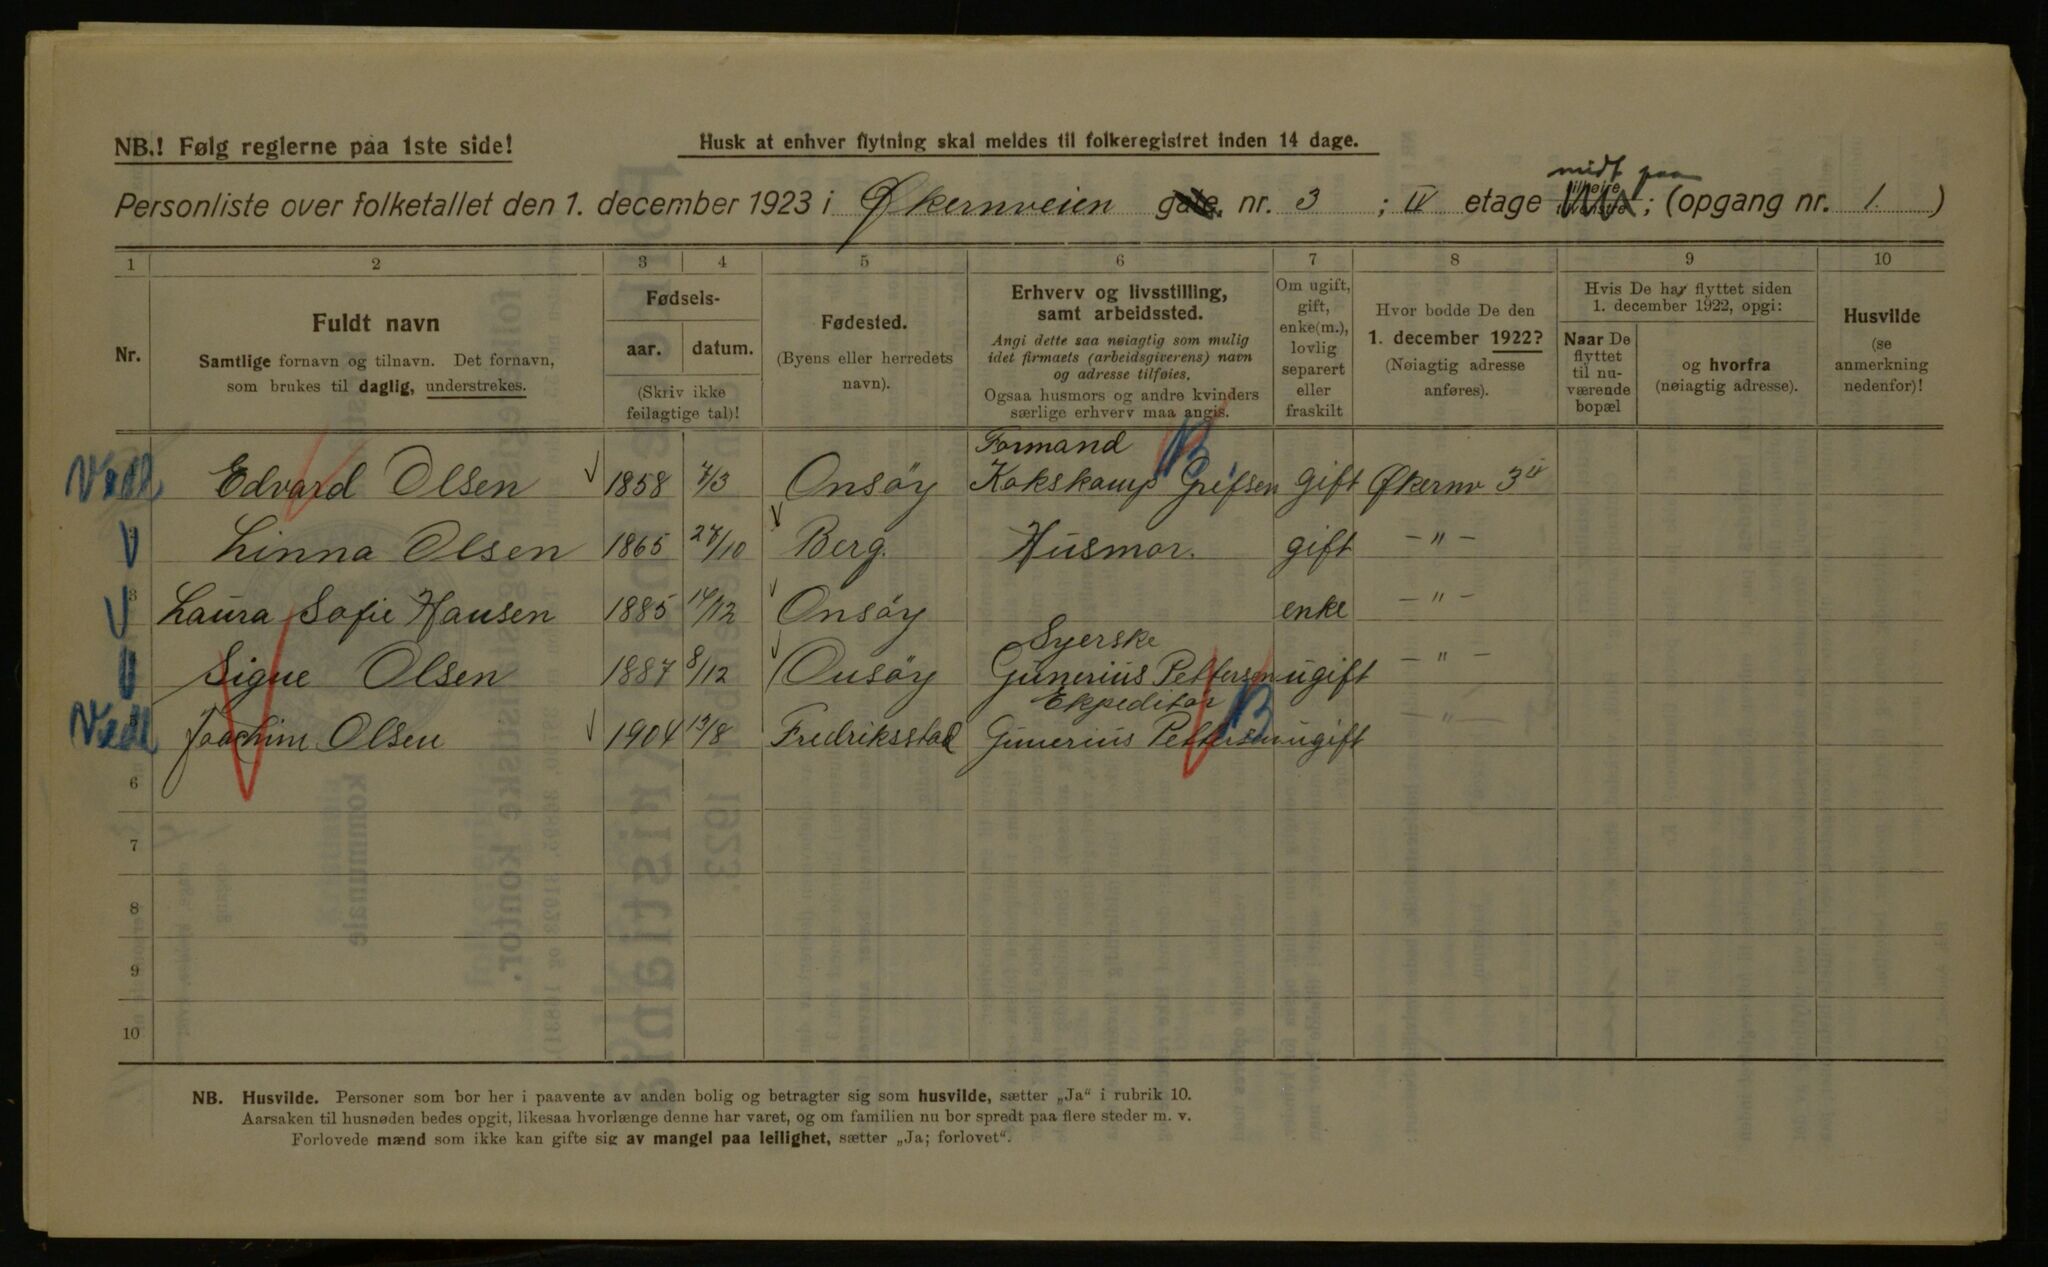 NB.! Følg reglerne paa 1ste side!
Husk at enhver flytning skal meldes til folkeregistret inden 14 dage.
midt paa
Personliste over folketallet den 1. december 1923 i Økernveien gate, nr. 3 ; IV etage tilhøire tilvenstre ; (opgang nr. 1. )
1 2 3 4 5 6 7 8 9 10
Nr.
Fuldt navn
Samtlige fornavn og tilnavn. Det fornavn,
som brukes til daglig, understrekes.
Fødsels-
aar. datum.
(Skriv ikke
feilagtige tal)!
Fødested.
(Byens eller herredets
navn).
Erhverv og livsstilling,
samt arbeidssted.
Angi dette saa nøiagtig som mulig
idet firmaets (arbeidsgiverens) navn
og adresse tilføies.
Ogsaa husmors og andre kvinders
særlige erhverv maa angis.
Om ugift,
gift,
enke(m.),
lovlig
separert
eller
fraskilt
Hvor bodde De den
1. december 1922?
(Nøiagtig adresse
anføres).
Hvis De har flyttet siden
1. december 1922, opgi:
Naar De
flyttet
til nu-
værende
bopæl
og hvorfra
(nøiagtig adresse).
Husvilde
(se
anmerkning
nedenfor)!
Formand
Edvard Olsen 1858 7/3 Onsöy Kokskomp Grefsen gift Økernv 3 IV
Linna Olsen 1865 27/10 Berg. Husmor. gift — " —
3 Laura Sofie Hansen 1885 14/12 Onsöy enke — " —
Syerske
Signe Olsen 1887 8/12 Onsöy Gunerius Pettersen ugift — " —
Ekpeditør
Joachim Olsen 1904 13/8 Fredriksstad Gunerius Pettersen ugift — " —
6
7
8
9
10
NB. Husvilde. Personer som bor her i paavente av anden bolig og betragter sig som husvilde, sætter „Ja“ i rubrik 10.
Aarsaken til husnøden bedes opgit, likesaa hvorlænge denne har varet, og om familien nu bor spredt paa flere steder m. v.
Forlovede mænd som ikke kan gifte sig av mangel paa leilighet, sætter „Ja; forlovet“.